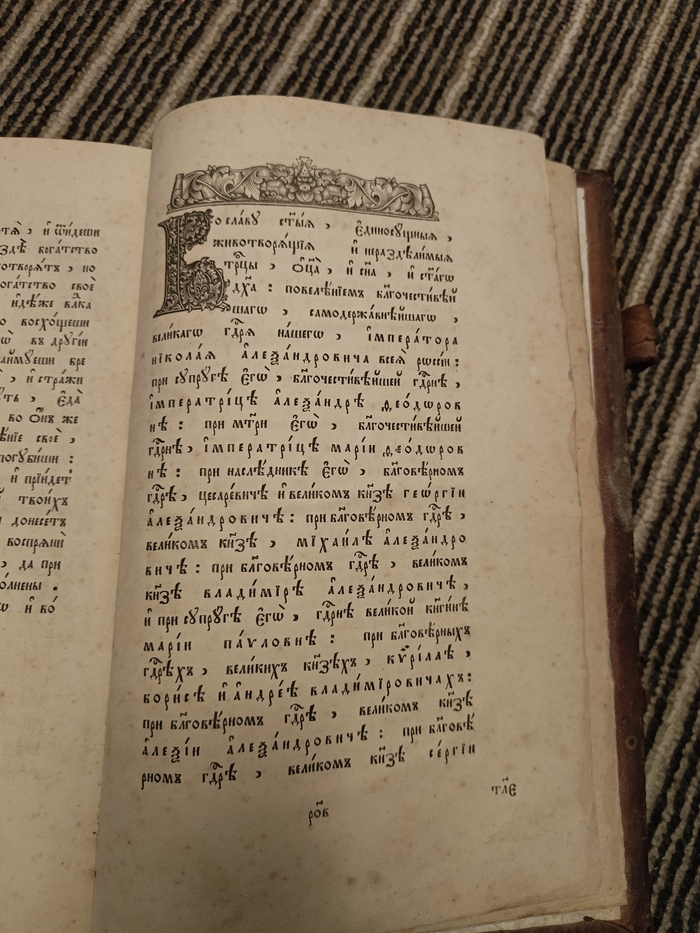 тѧ̀, и҆ ѿи́деши
здѣ̀ бога́тство
котворѧ́тъ, но
бога́тство своѐ
и҆дѣ́же влⷣка
восхо́щеши
въ дрꙋгі́й
и҆ стра́жи
є҆да̀
во ѻ҆́нъ же
своѐ,
погꙋби́ши :
и҆ прїи́детъ
твои́хъ
донесе́тъ
воспрѧ́нй
да при
и҆ во́
Во сла́вꙋ ст҃ы́ѧ, є҆диносꙋ́щныѧ,
животворѧ́щїѧ и҆ нераздѣ́лимыѧ
трⷪ҇цы, ѻ҆ц҃а̀, и҆ сн҃а, и҆ ст҃а́гѡ
дх҃а : повелѣ́нїемъ бл҃гочести́вѣй
шагѡ, самодержа́внѣйшагѡ,
вели́кагѡ гдⷭ҇рѧ на́шегѡ, і҆мпера́тора
нїкола́ѧ а҆леѯа́ндровича всеѧ̀ рѡссі́и :
при сꙋпрꙋ́гѣ є҆гѡ̀, бл҃гочести́вѣйшей гдⷭ҇рнѣ,
і҆мператрі́цѣ а҆леѯа́ндрѣ ѳео́дѡров
нѣ : при мт҃ри є҆гѡ̀, бл҃гочести́вѣйшей
гдⷭ҇рнѣ, і҆мператрі́цѣ марі́и ѳео́дѡров
нѣ : при наслѣ́дникѣ є҆гѡ̀, бл҃говѣ́рномъ
гдⷭ҇рѣ, цесаре́вичѣ и҆ вели́комъ кн҃зѣ геѡ́ргїи
а҆леѯа́ндровичѣ : при бл҃говѣ́рномъ гдⷭ҇рѣ,
вели́комъ кн҃зѣ, мїхаи́лѣ а҆леѯа́ндро
вичѣ : при бл҃говѣ́рномъ гдⷭ҇рѣ, вели́комъ
кн҃зѣ влади́мїрѣ а҆леѯа́ндровичѣ,
и҆ при сꙋпрꙋ́гѣ є҆гѡ̀, гдⷭ҇рнѣ вели́кой кн҃ги́нѣ
марі́и па́ѵловнѣ : при бл҃говѣ́рныхъ
гдⷭ҇рѣхъ, вели́кихъ кн҃зѣхъ, кѷрі́ллѣ,
бори́сѣ и҆ а҆ндре́ѣ влади́мїровичахъ :
при бл҃говѣ́рномъ гдⷭ҇рѣ, вели́комъ кн҃зѣ
а҆леѯі́и а҆леѯа́ндровичѣ : при бл҃говѣ́
рномъ гдⷭ҇рѣ, вели́комъ кн҃зѣ се́ргїи
тл҃є
ро́в